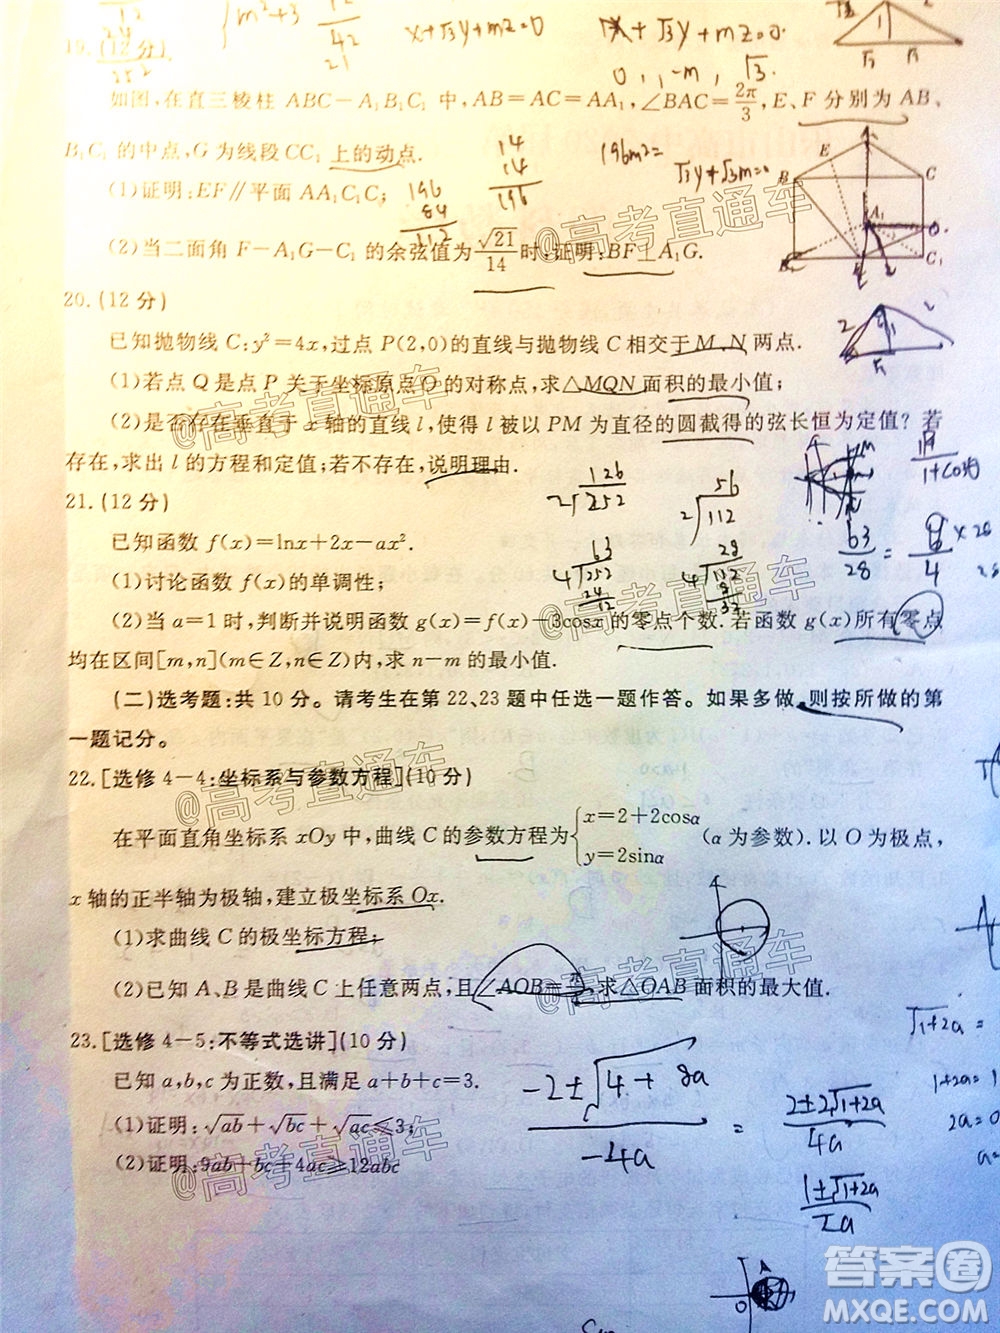 19.(12分)
如图,在直三棱柱 ABC-A₁B₁C₁ 中,AB=AC=AA₁,∠BAC=2π/3,E、F 分别为 AB、
B₁C₁ 的中点,G 为线段 CC₁ 上的动点.
(1)证明:EF∥平面 AA₁C₁C;
(2)当二面角 F-A₁G-C₁ 的余弦值为 √21/14 时,证明:BF⊥A₁G.
20.(12分)
已知抛物线 C:y²=4x,过点 P(2,0)的直线与抛物线 C 相交于 M、N 两点.
(1)若点 Q 是点 P 关于坐标原点 O 的对称点,求△MQN 面积的最小值;
(2)是否存在垂直于 x 轴的直线 l,使得 l 被以 PM 为直径的圆截得的弦长恒为定值?若
存在,求出 l 的方程和定值;若不存在,说明理由.
21.(12分)
已知函数 f(x)=lnx+2x-ax².
(1)讨论函数 f(x)的单调性;
(2)当 a=1 时,判断并说明函数 g(x)=f(x)-3cosx 的零点个数.若函数 g(x)所有零点
均在区间[m,n](m∈Z,n∈Z)内,求 n-m 的最小值.
(二)选考题:共 10 分。请考生在第 22、23 题中任选一题作答。如果多做,则按所做的第
一题记分。
22.[选修 4-4:坐标系与参数方程](10 分)
在平面直角坐标系 xOy 中,曲线 C 的参数方程为 {x=2+2cosα y=2sinα (α 为参数).以 O 为极点,
x 轴的正半轴为极轴,建立极坐标系 Ox.
(1)求曲线 C 的极坐标方程;
(2)已知 A、B 是曲线 C 上任意两点,且∠AOB=π/ ,求△OAB 面积的最大值.
23.[选修 4-5:不等式选讲](10 分)
已知 a,b,c 为正数,且满足 a+b+c=3.
(1)证明:√ab+√bc+√ac≤3;
(2)证明:9ab+bc+4ac≥12abc
x+√3y+mz=0
0, , -m, √3
196m²=
√3y+√3m=0
-2±√4+8a / -4a = 2±2√1+2a / 4a
1±√1+2a / 2a
√1+2a =
1+2a=1
2a=0
a=
@高考直通车
@高考直通车
@高考直通车
@高考直通车
@高考直通车
@高考直通车
答案圈
MXQE.COM